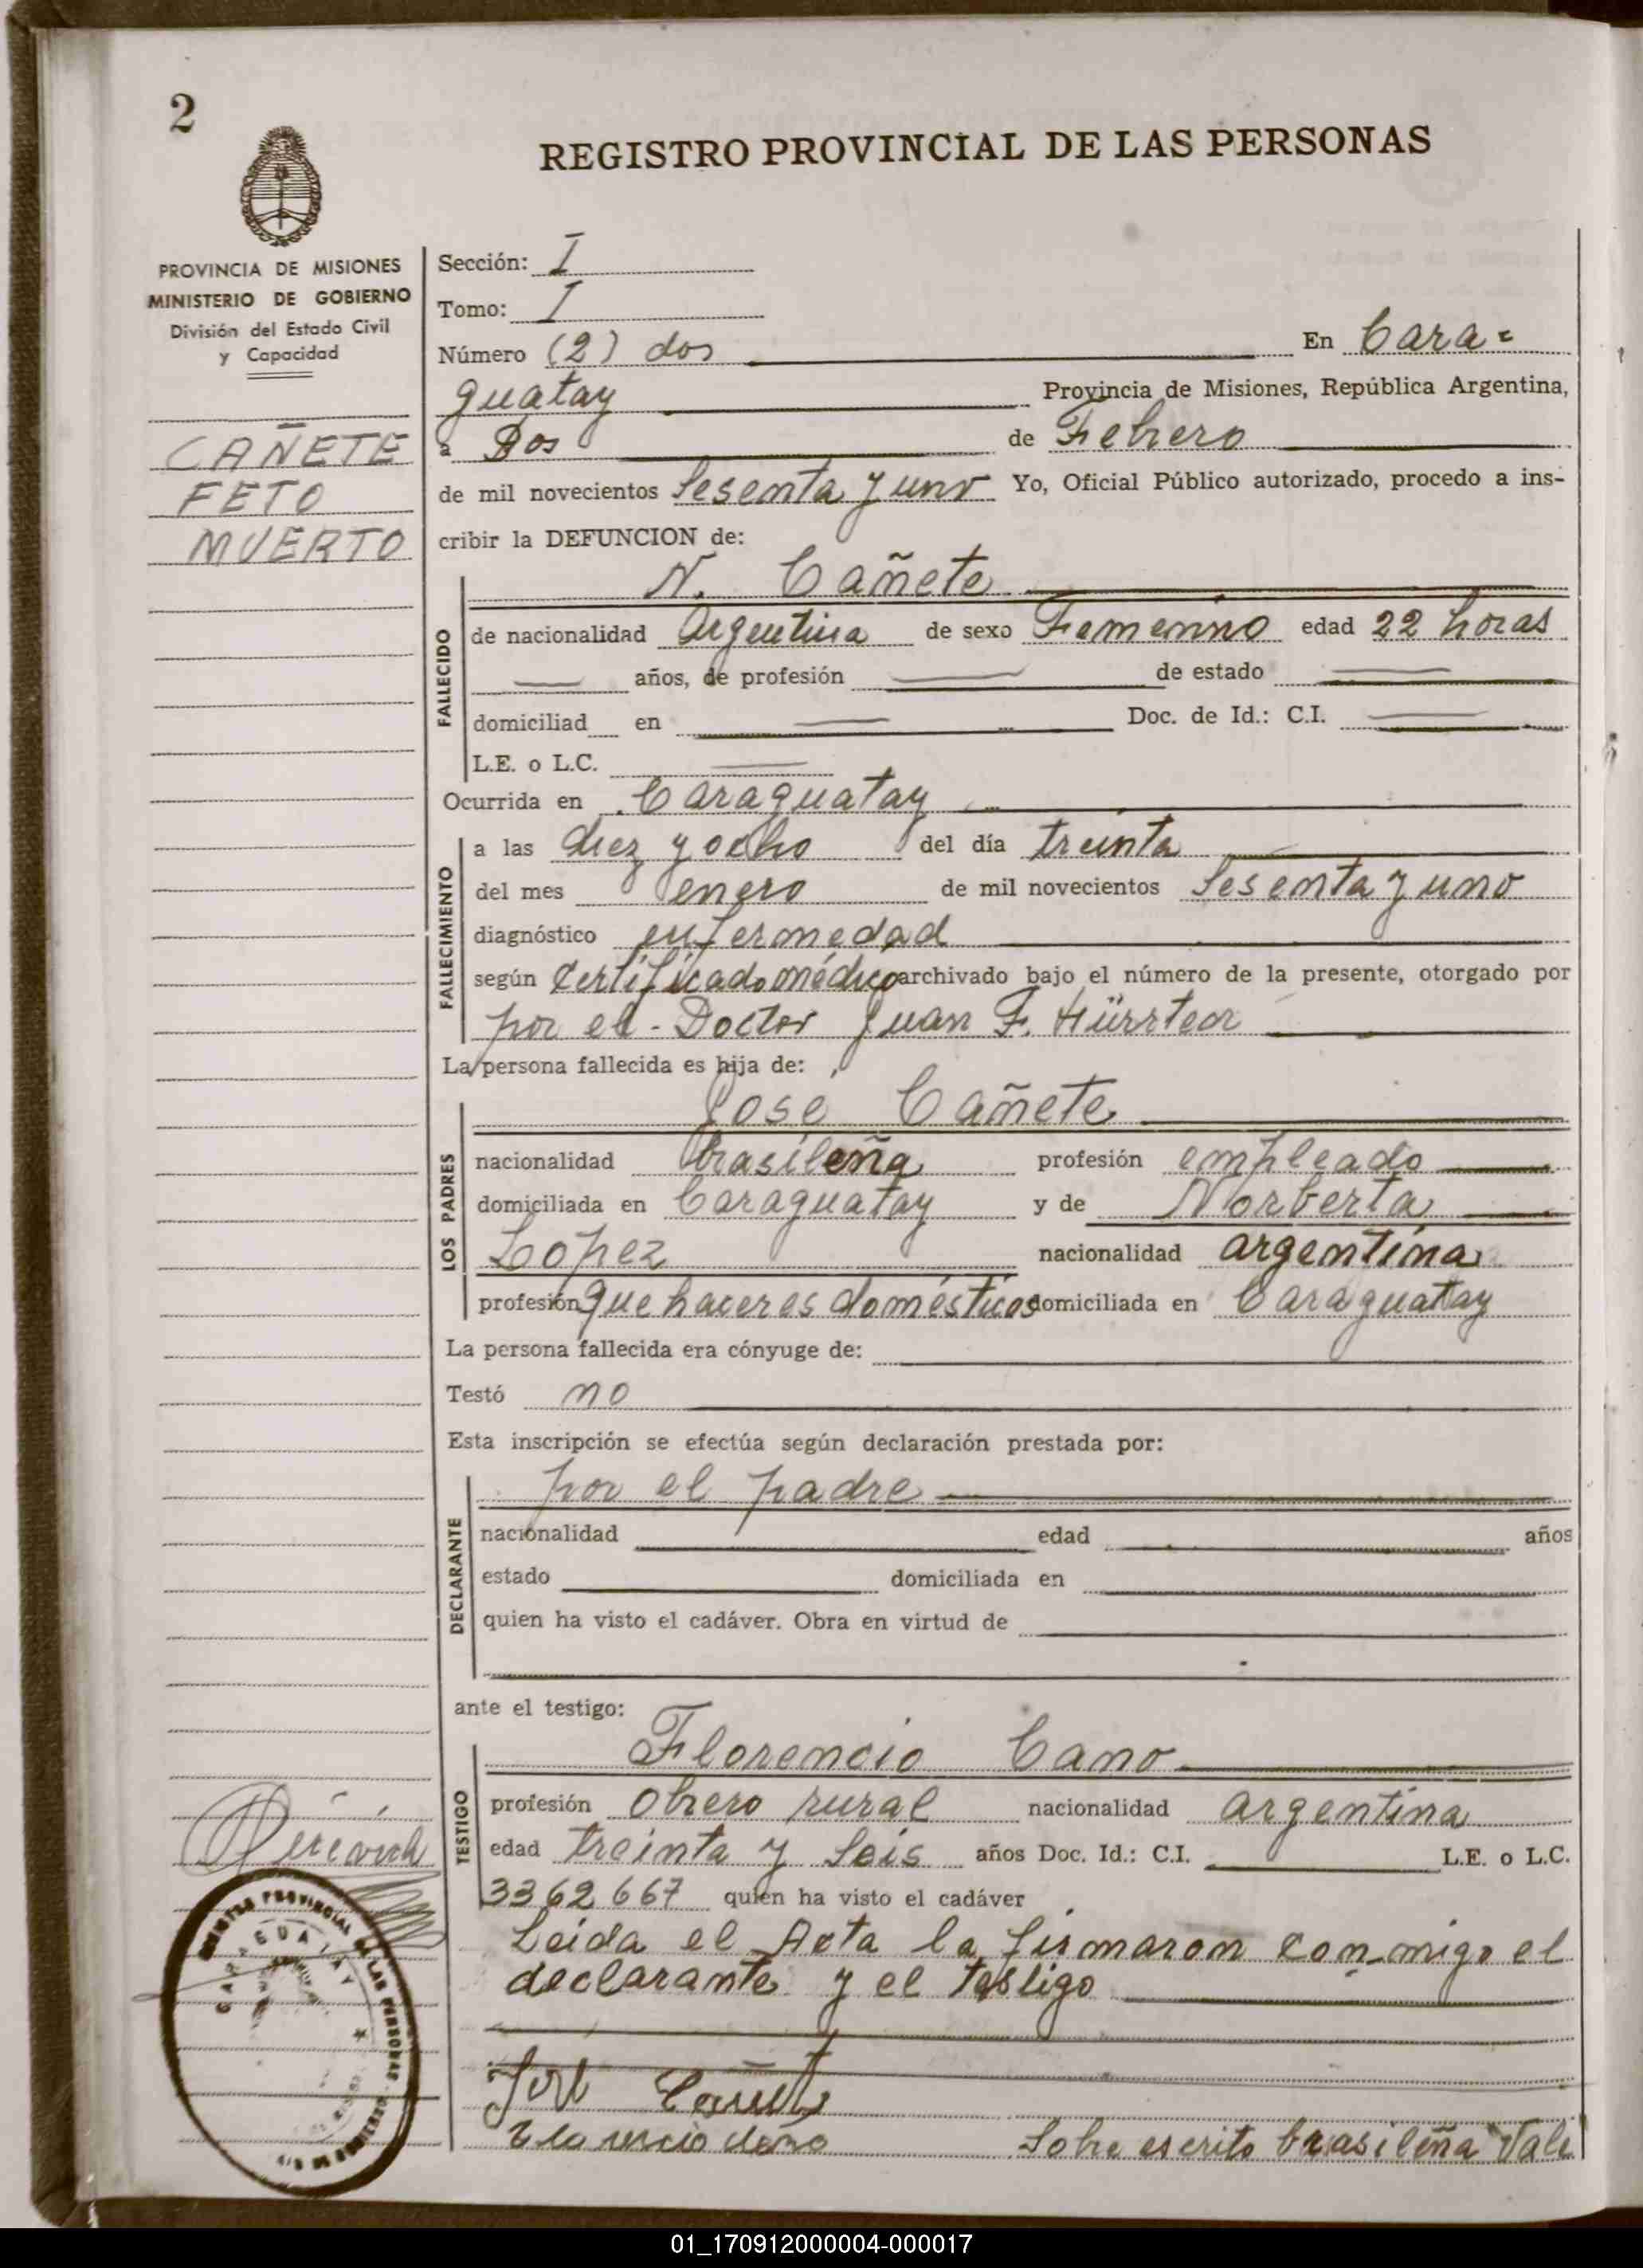 2
REGISTRO PROVINCIAL DE LAS PERSONAS
PROVINCIA DE MISIONES
MINISTERIO DE GOBIERNO
División del Estado Civil
y Capacidad
CAÑETE
FETO
MUERTO
Sección: I
Tomo: I
Número (2) dos En Cara=
guatay Provincia de Misiones, República Argentina,
a Dos de Febrero
de mil novecientos Sesenta y uno Yo, Oficial Público autorizado, procedo a ins-
cribir la DEFUNCION de:
FALLECIDO
N. Cañete
de nacionalidad Argentina de sexo Femenino edad 22 horas
años, de profesión de estado
domiciliad en Doc. de Id.: C.I.
L.E. o L.C.
Ocurrida en Caraguatay
FALLECIMIENTO
a las diez y ocho del día treinta
del mes enero de mil novecientos Sesenta y uno
diagnóstico enfermedad
según Certificado médico archivado bajo el número de la presente, otorgado por
por el - Doctor Juan F.
La persona fallecida es hija de:
LOS PADRES
Jose Cañete
nacionalidad brasileña profesión empleado
domiciliada en Caraguatay y de Norberta
Lopez nacionalidad argentina
profesión que haceres domésticos domiciliada en Caraguatay
La persona fallecida era cónyuge de:
Testó no
Esta inscripción se efectúa según declaración prestada por:
DECLARANTE
por el padre
nacionalidad edad años
estado domiciliada en
quien ha visto el cadáver. Obra en virtud de
ante el testigo:
TESTIGO
Florencio Cano
profesión Obrero rural nacionalidad argentina
edad treinta y Seis años Doc. Id.: C.I. L.E. o L.C.
3362667 quien ha visto el cadáver
Leida el Acta la firmaron conmigo el
declarante y el testigo
José Cañete
Florencio Cano
Sobre escrito brasileña Vale
REGISTRO PROVINCIAL DE LAS PERSONAS
CARAGUATAY
01_170912000004-000017